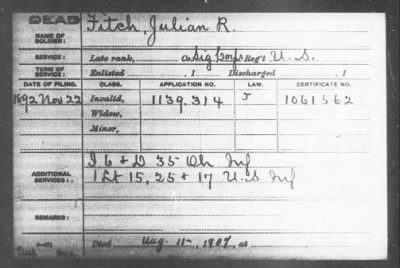 DEAD
NAME OF SOLDIER: Fitch, Julian R.
SERVICE: Late rank, Co. Sig Corps Reg't U. S.
TERM OF SERVICE: Enlisted , 1 Discharged , 1
DATE OF FILING. CLASS. APPLICATION NO. LAW. CERTIFICATE NO.
1892 Nov 22 Invalid, 1139.314 J 1061562
Widow,
Minor,
ADDITIONAL SERVICES: I 6 + D 35 Oh Inf
1 Lt 15, 25 + 17 U. S Inf
REMARKS:
Died Aug. 11, 1907, at